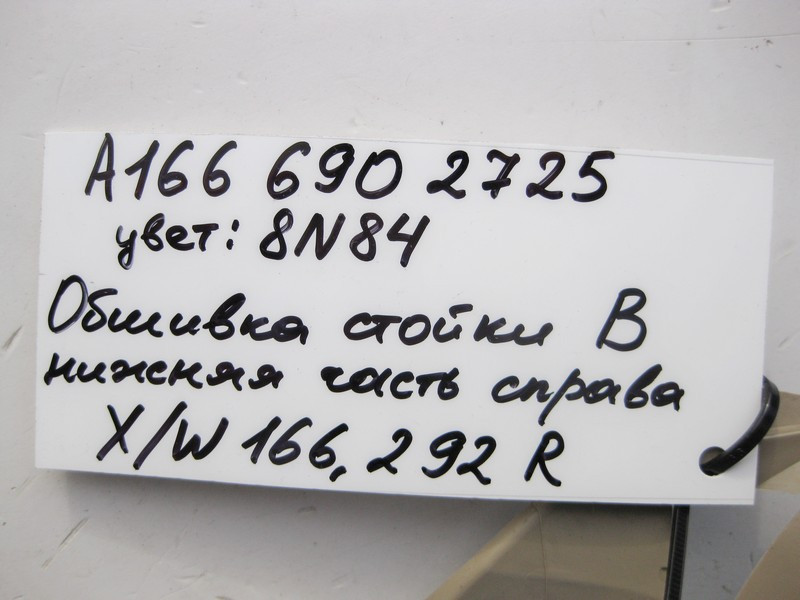 A166 690 2725
цвет: 8N84
Обшивка стойки B
нижняя часть справа
X/W 166, 292 R